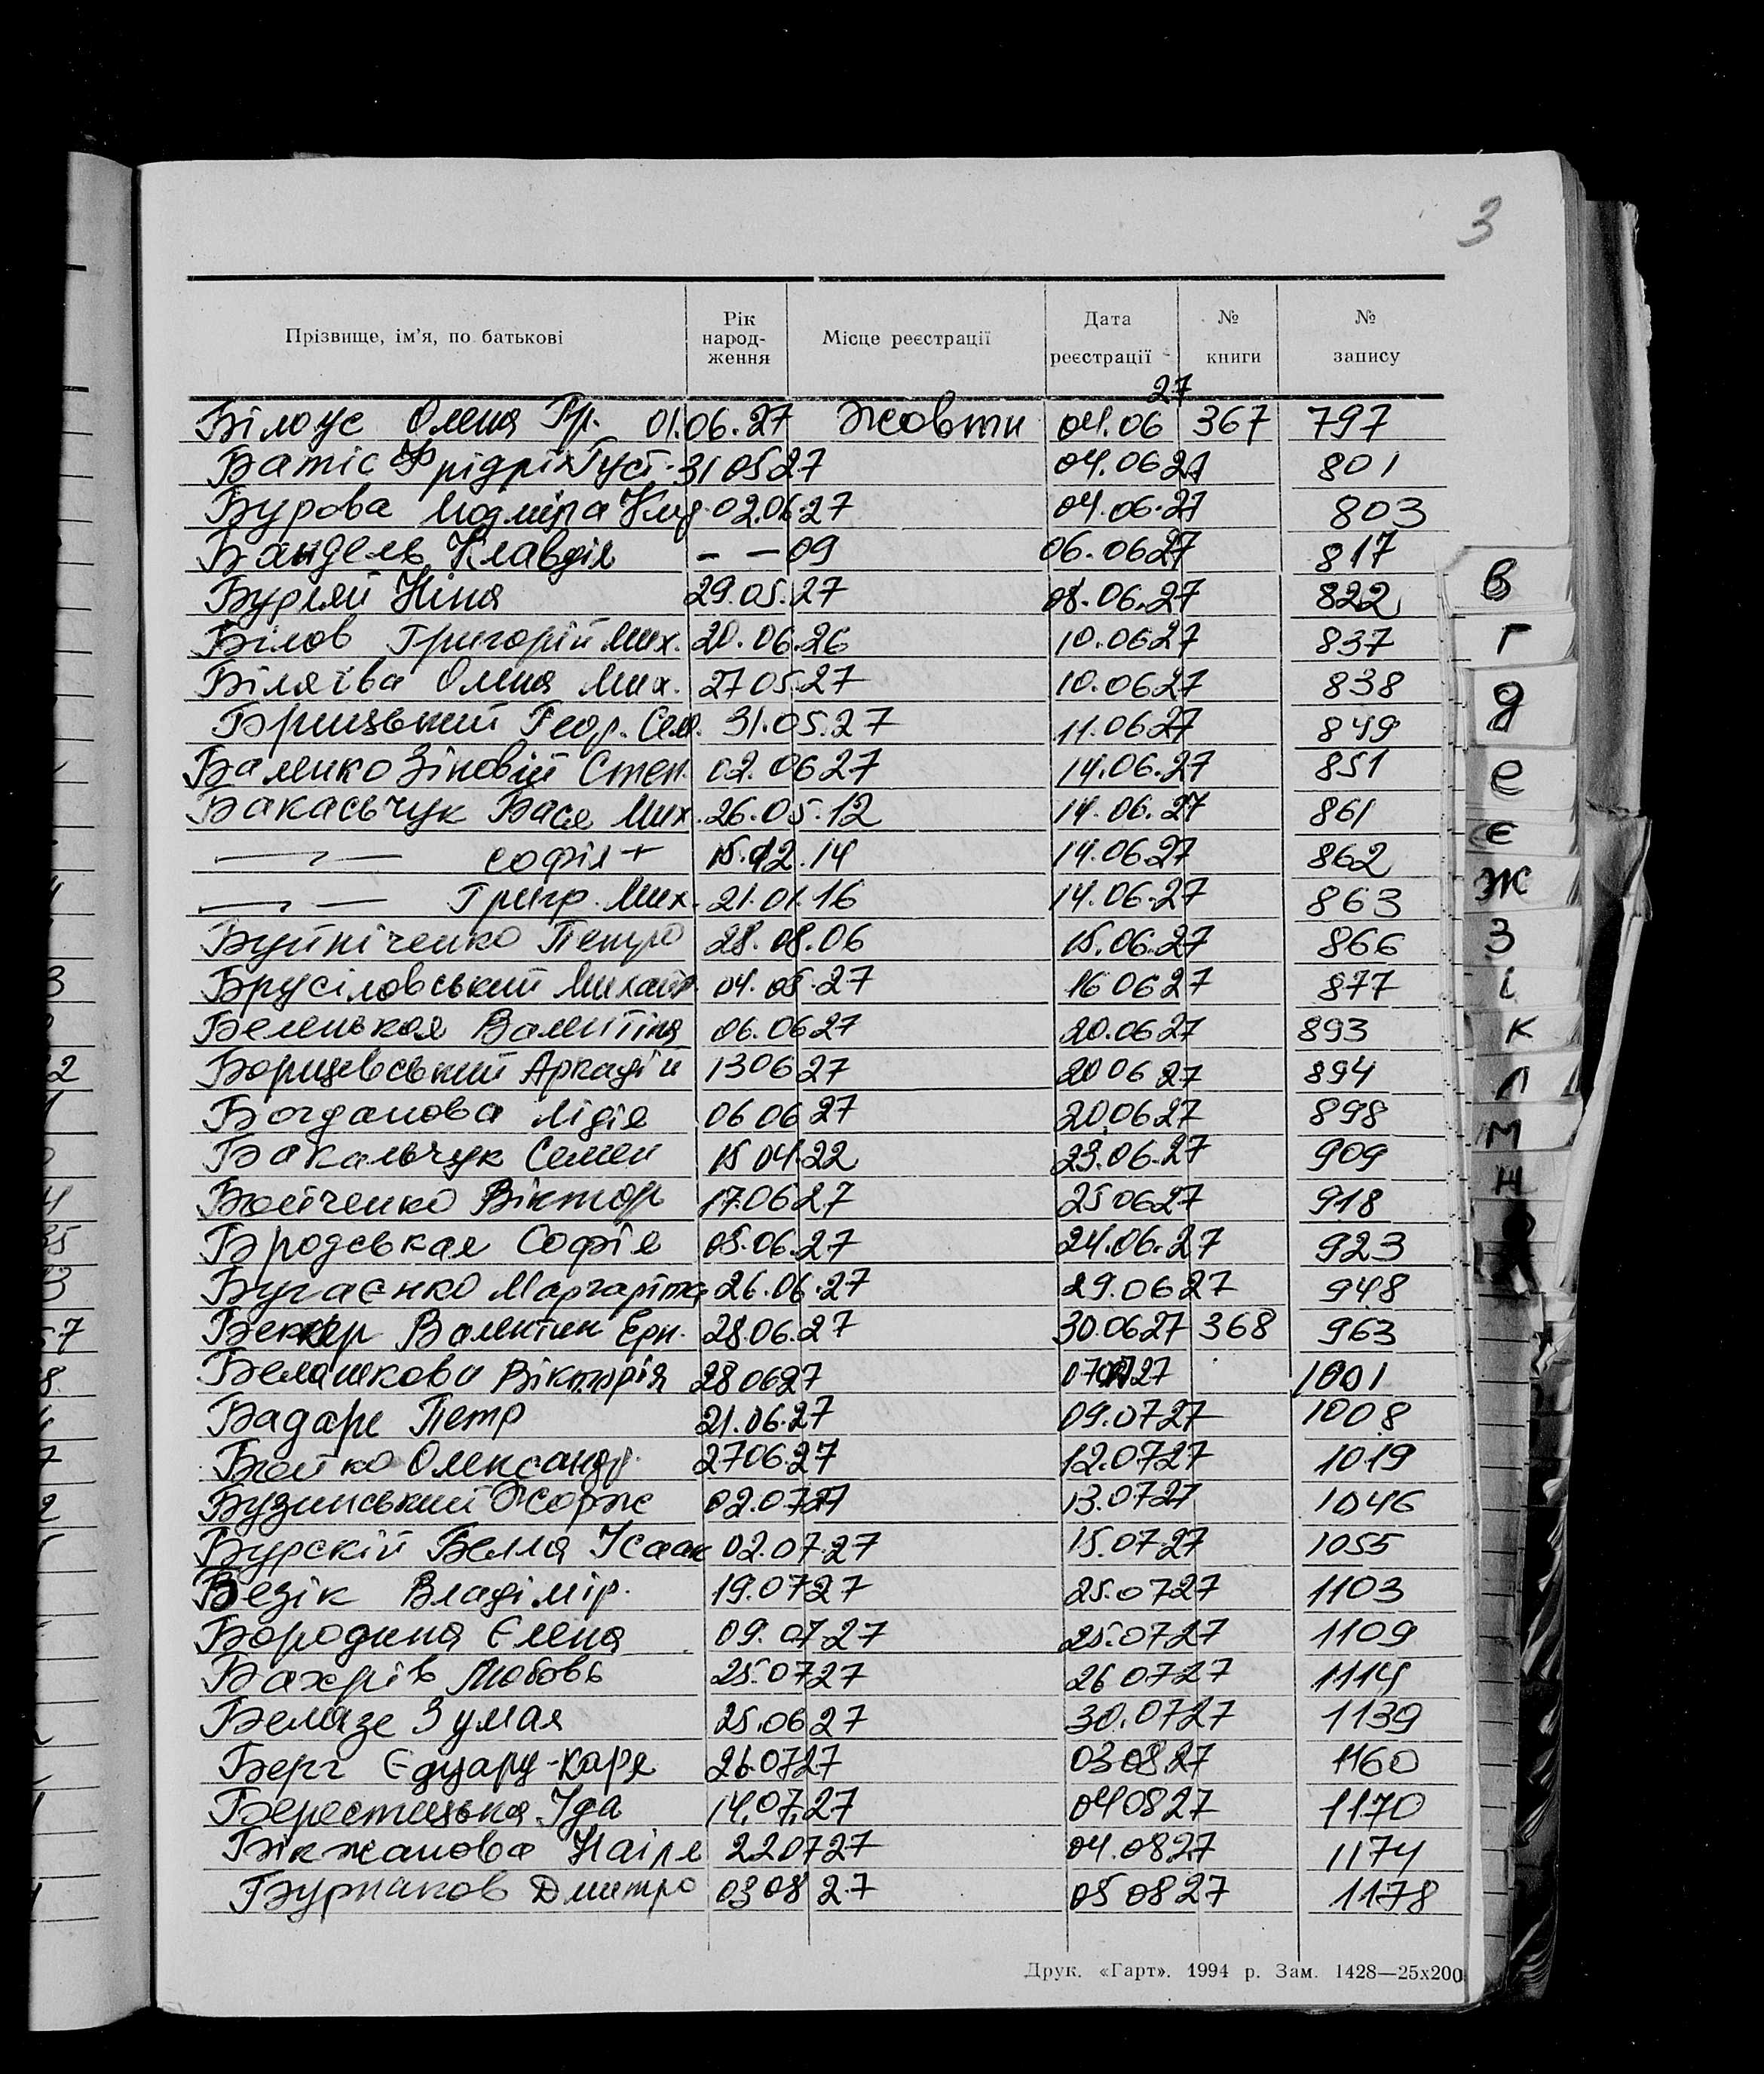 3
Прізвище, ім'я, по батькові Рік народ-ження Місце реєстрації Дата реєстрації № книги № запису
27
Білоус Олена Гр. 01.06.27 Жовтн 04.06 367 797
Батіс Фрідріх Густ. 31 05 27 04.06 27 801
Бурова Людміла 02.06.27 04.06.27 803
Бандель Клавдія — — 09 06.06 27 817
Буряй Ніна 29.05.27 08.06.27 822
Білов Григорій Мих. 20.06.26 10.06 27 837
Біляїва Олена Мих. 27 05.27 10.06 27 838
Брицький Геор. Сем. 31.05.27 11.06 27 849
Баленко Зіновій Степ. 02.06 27 14.06.27 851
Бакасьчук Вася Мих. 26.05.12 14.06.27 861
—„— Софія + 15.12.14 14.06.27 862
—„— Григор. Мих. 21.01.16 14.06.27 863
Буйніченко Петро 28.08.06 15.06.27 866
Брусіловський Михайл 04.06.27 16 06 27 877
Беленькая Валентіна 06.06 27 20.06 27 893
Борщевський Аркадій 13 06 27 20 06 27 894
Богданова Лідія 06 06 27 20.06 27 898
Бакальчук Семен 15 04.22 23.06.27 909
Бойченко Віктор 17.06 27 25 06 27 918
Бродськая Софія 05.06.27 24.06.27 923
Бугаєнко Маргаріта 26.06.27 29.06 27 948
Беккер Валентин Ерн. 28.06.27 30.06 27 368 963
Белашкова Вікторія 28 06 27 07 07 27 1001
Бадаре Петр 21.06.27 09.07 27 1008
Бойко Олександ. 27 06.27 12.07 27 1019
Бузинський Жорж 02.07 27 13.07 27 1046
Бурскій Белла Ісаак 02.07.27 15.07 27 1055
Безік Владімір. 19.07 27 25.07 27 1103
Бородина Єлена 09.07 27 25.07 27 1109
Бахрів Любовь 25.07 27 26 07 27 1114
Белязе Зумая 25.06 27 30.07 27 1139
Берг Єдуард-Карл 26.07 27 03 08 27 1160
Берестицька Іда 14.07.27 04 08 27 1170
Бікжанова Наіля 22 07 27 04.08 27 1174
Бурнаков Дмитро 03 08 27 05 08 27 1178
Друк. «Гарт». 1994 р. Зам. 1428—25х200
В
Г
Д
Е
Є
Ж
З
І
К
Л
М
Н